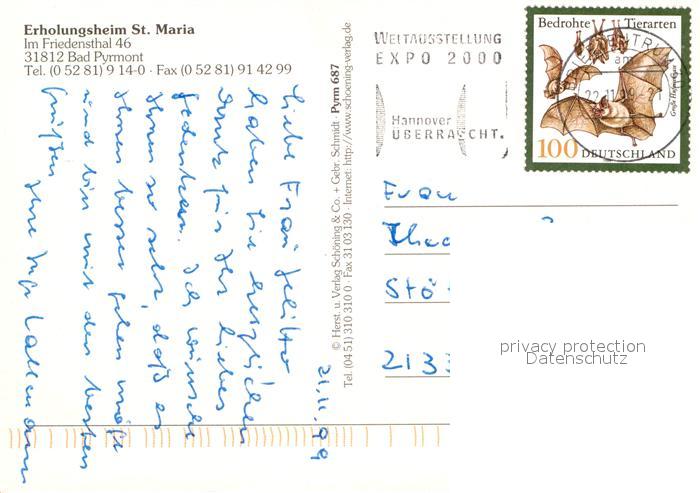 Erholungsheim St. Maria
Im Friedensthal 46
31812 Bad Pyrmont
Tel. (0 52 81) 9 14-0 · Fax (0 52 81) 91 42 99
21.11.99
Liebe Frau
haben Sie herzlichen
Dank für Ihr liebes
Gedenken. Ich wünsche
Ihnen so sehr, daß es
Ihnen besser gehen möge
und bin mit den besten
Grüßen
Ihre
© Herst. u. Verlag Schöning & Co. + Gebr. Schmidt · Pyrm 687
Tel. (04 51) 310 310 0 · Fax 31 03 130 · Internet: http://www.schoening-verlag.de
WELTAUSSTELLUNG
EXPO 2000
Hannover
ÜBERRASCHT.
Bedrohte Tierarten
22.11.99-21
100 DEUTSCHLAND
Frau
Thea
Stö
2133
privacy protection
Datenschutz